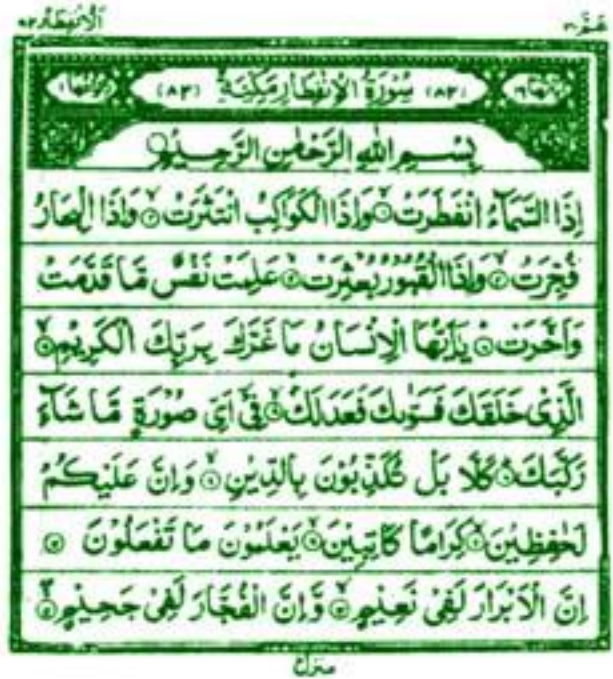 عَمَّ ٣٠ اَلْاِنْفِطَار ٨٢
اٰيَاتُهَا ١٩ (٨٢) سُوْرَةُ الْاِنْفِطَارِ مَكِّيَّةٌ (٨٢) رُكُوْعُهَا ١
بِسْمِ اللّٰهِ الرَّحْمٰنِ الرَّحِيْمِ
اِذَا السَّمَآءُ انْفَطَرَتْ ۝۱ وَاِذَا الْكَوَاكِبُ انْتَثَرَتْ ۝۲ وَاِذَا الْبِحَارُ
فُجِّرَتْ ۝۳ وَاِذَا الْقُبُوْرُ بُعْثِرَتْ ۝۴ عَلِمَتْ نَفْسٌ مَّا قَدَّمَتْ
وَاَخَّرَتْ ۝۵ يٰۤاَيُّهَا الْاِنْسَانُ مَا غَرَّكَ بِرَبِّكَ الْكَرِيْمِ ۝۶
الَّذِيْ خَلَقَكَ فَسَوّٰىكَ فَعَدَلَكَ ۝۷ فِيْۤ اَيِّ صُوْرَةٍ مَّا شَآءَ
رَكَّبَكَ ۝۸ كَلَّا بَلْ تُكَذِّبُوْنَ بِالدِّيْنِ ۝۹ وَاِنَّ عَلَيْكُمْ
لَحٰفِظِيْنَ ۝۱۰ كِرَامًا كَاتِبِيْنَ ۝۱۱ يَعْلَمُوْنَ مَا تَفْعَلُوْنَ ۝۱۲
اِنَّ الْاَبْرَارَ لَفِيْ نَعِيْمٍ ۝۱۳ وَّاِنَّ الْفُجَّارَ لَفِيْ جَحِيْمٍ ۝۱۴